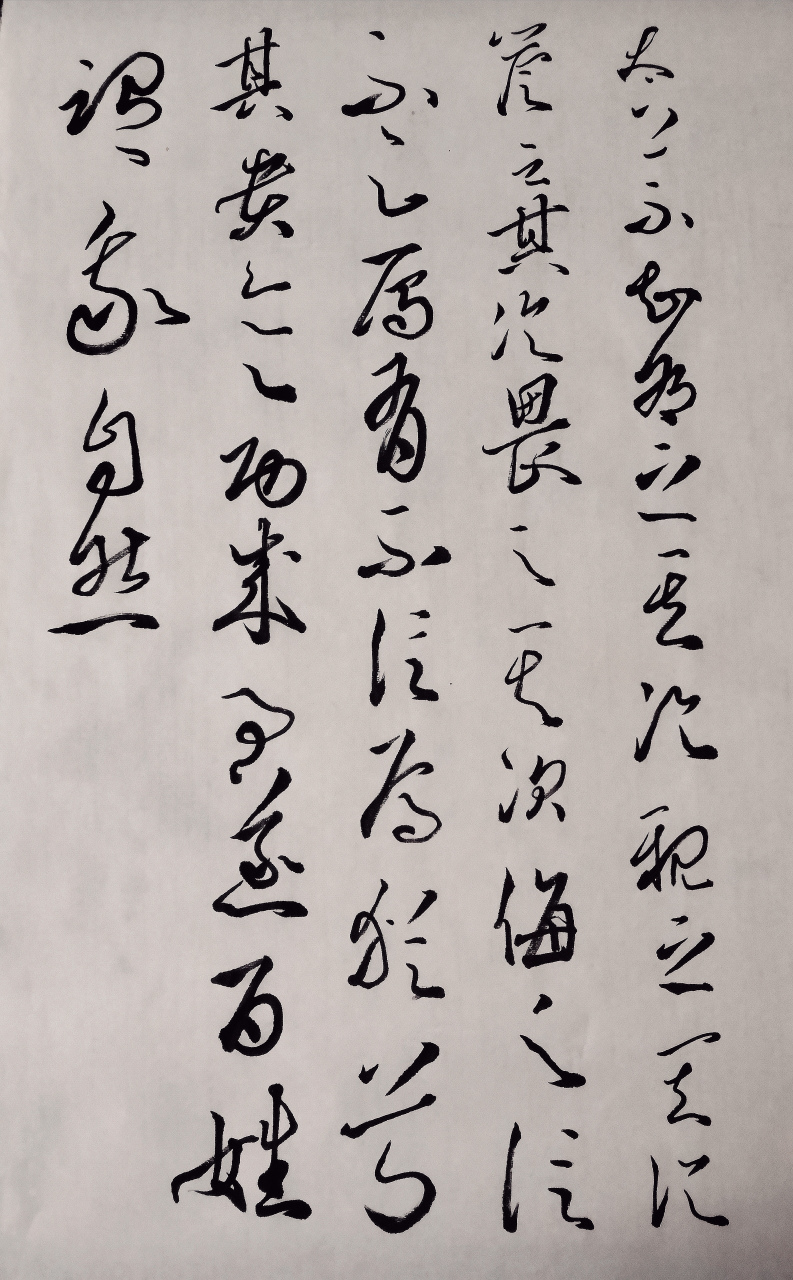 太上不知有之其次親之其次
譽之其次畏之其次侮之信
不足焉有不信焉猶兮
其貴言功成事遂百姓
謂我自然